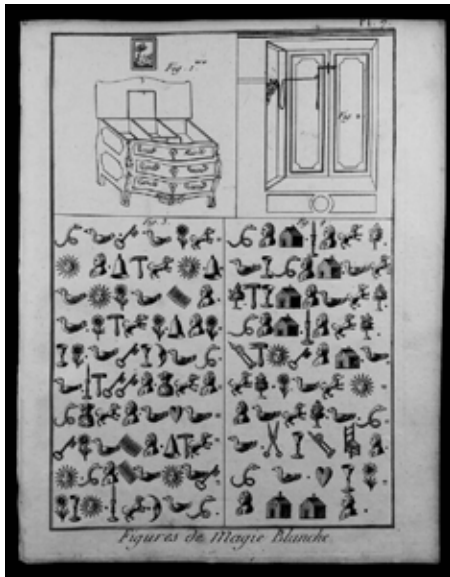 Pl. 9.
Fig. 1ere
Fig. 2
Fig. 3.
Figures de Magie Blanche.